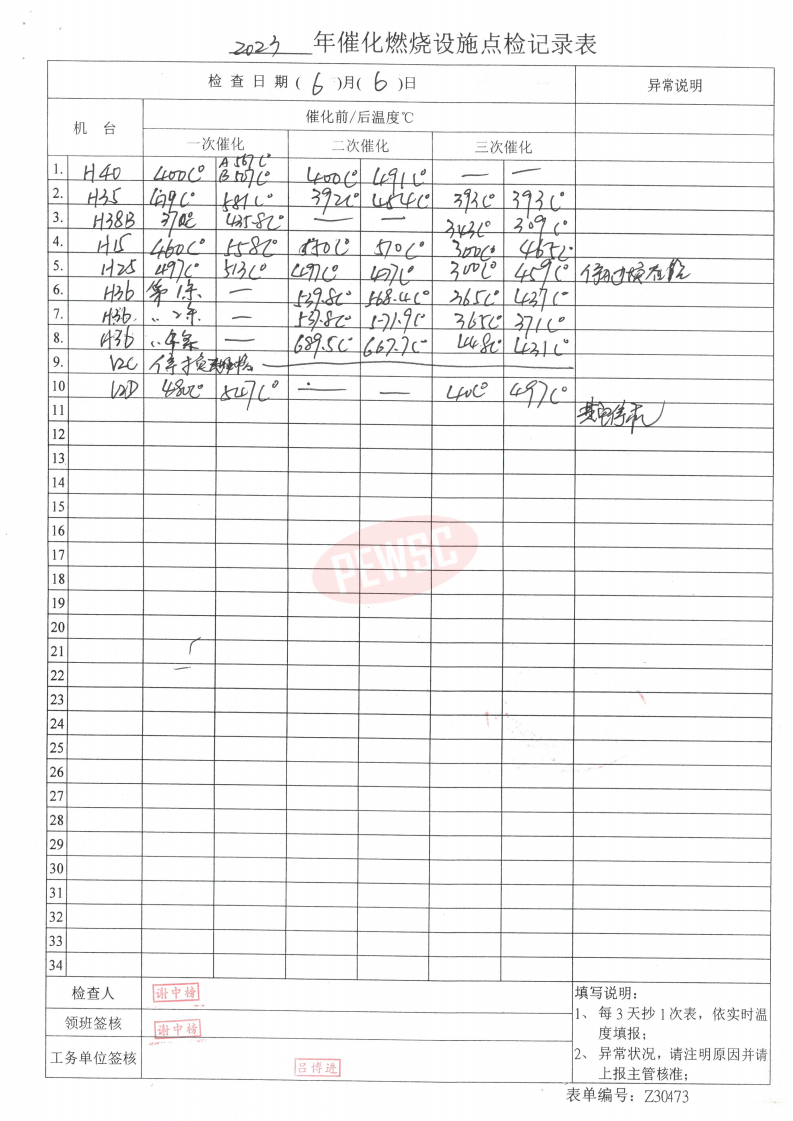 2023 年催化燃烧设施点检记录表
检查日期( 6 )月( 6 )日 异常说明
机 台 催化前/后温度℃
一次催化 二次催化 三次催化
1. H40 400C° A 567C° B 507C° 400C° 491C° — —
2. H35 581C° 392C° 454C° 393C° 393C°
3. H38B 370C 435.8C° — — 343C° 309C°
4. H15 460C° 558C° 570C° 300C° 465C°
5. H25 497C° 513C° 497C° 300C° 459C°
6. H36 第1条 — 539.8C° 568.4C° 365C° 437C°
7. H36. 〃 2条 — 537.8C° 571.9C° 365C° 371C°
8. H36 — 689.5C° 667.7C° 448C° 431C°
9. V2C 停
10 V2D 480C° 547C° — — 40C° 497C°
11
12
13
14
15
16
17
18
19
20
21
22
23
24
25
26
27
28
29
30
31
32
33
34
PEWSC
检查人 谢中榜
领班签核 谢中榜
工务单位签核 吕博进
填写说明:
1、每3天抄1次表，依实时温
度填报;
2、异常状况，请注明原因并请
上报主管核准;
表单编号: Z30473